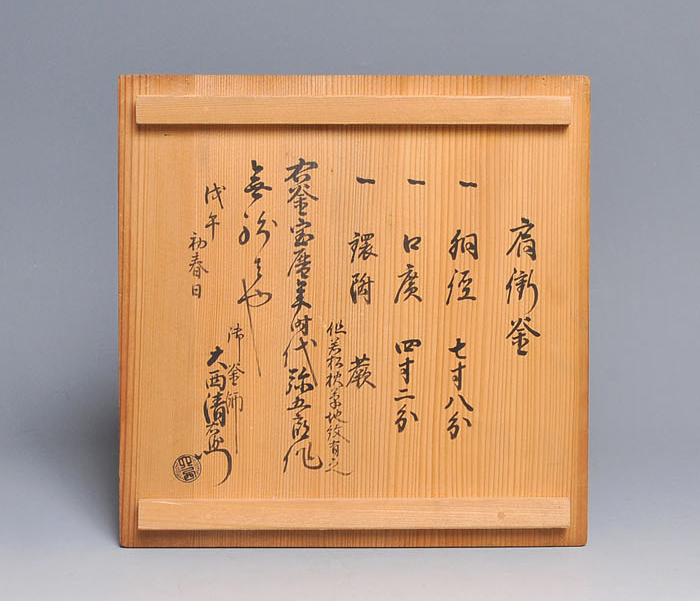 肩衝釜
一 胴径 七寸八分
一 口廣 四寸二分
一 鐶附 蕨
但若松秋草地紋有之
右釜宝暦年時代弥五郎作
無紛者也
戊午 初春日
御釜師
大西清右衛門